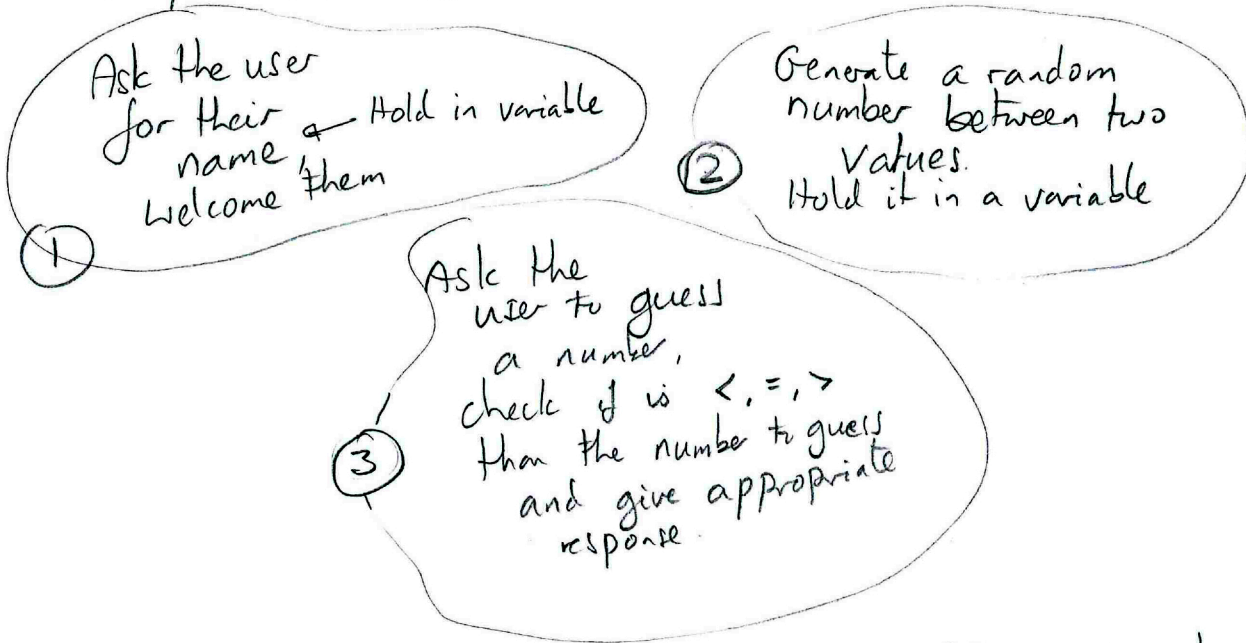 Ask the user
for their
name, ← Hold in variable
welcome them
1
Generate a random
number between two
values.
Hold it in a variable
2
Ask the
user to guess
a number,
check if is <, =, >
than the number to guess
and give appropriate
response.
3